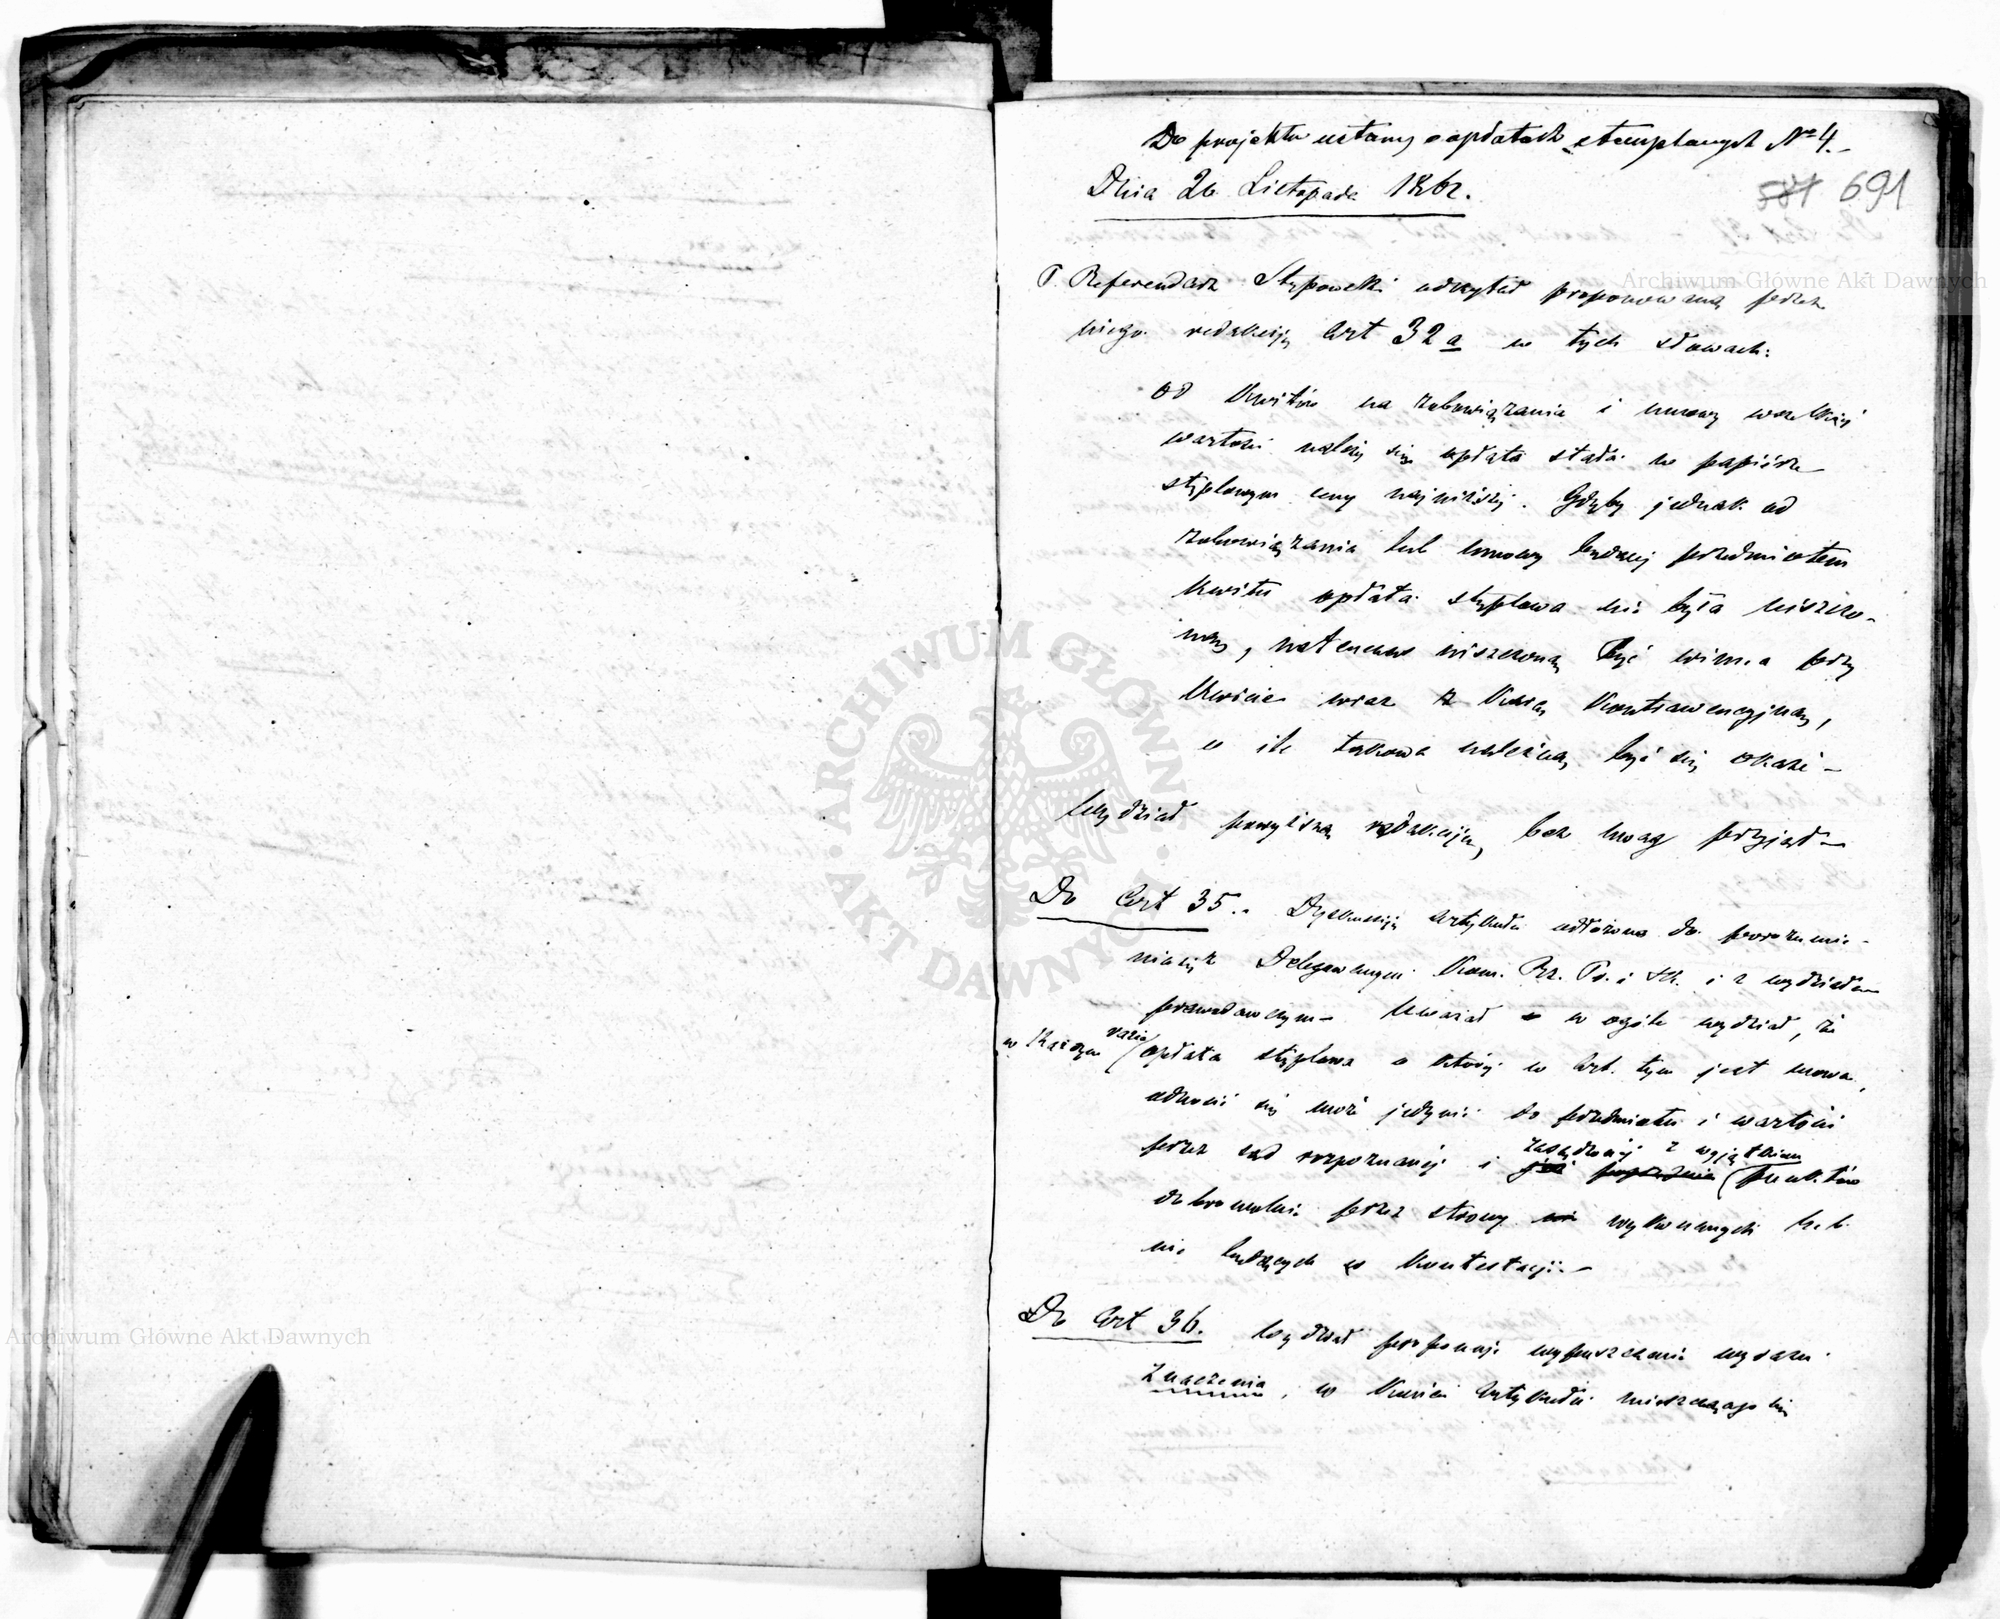 Do projektu ustawy o opłatach stemplowych № 4.
Dnia 26 Listopada 1862.
587 691
P. Referendarz Stępowski odczytał proponowaną przez
niego redakcyją Art 32 a w tych słowach:
od kwitów na zobowiązania i umowy wszelkiéj
wartości należy się opłata stała w papiérze
stęplowym ceny najniższéj. Gdyby jednak od
zobowiązania lub umowy będącéj przedmiotem
kwitu opłata stęplowa nie była uiszczo-
ną, natenczas uiszczoną być winna przy
kwicie wraz z karą kontrawencyjną,
o ile takowa należną być się okaże –
Wydział powyższą redakcyją bez uwag przyjął –
Do Art 35. Dyskussyją artykułu odłożono do porozumie-
nia się z Delegowanym Kom. Rz. P. i Sk. i z wydziałem
prawodawczym – Uważał w ogóle wydział, że
w każdym razie
opłata stęplowa o któréj w Art. tym jest mowa,
odnosić się może jedynie do przedmiotu i wartości
zasądzonéj z wyjątkiem
przez sąd rozpoznanéj i punktów
dobrowolnie przez strony wykonanych lub
nie będących w kontestacyi. –
Do Art 36. Wydział proponuje wypuszczenie wyrazu
znaczenia, w końcu Artykułu mieszczącego się
Archiwum Główne Akt Dawnych
Archiwum Główne Akt Dawnych
ARCHIWUM GŁÓWNE · AKT DAWNYCH ·